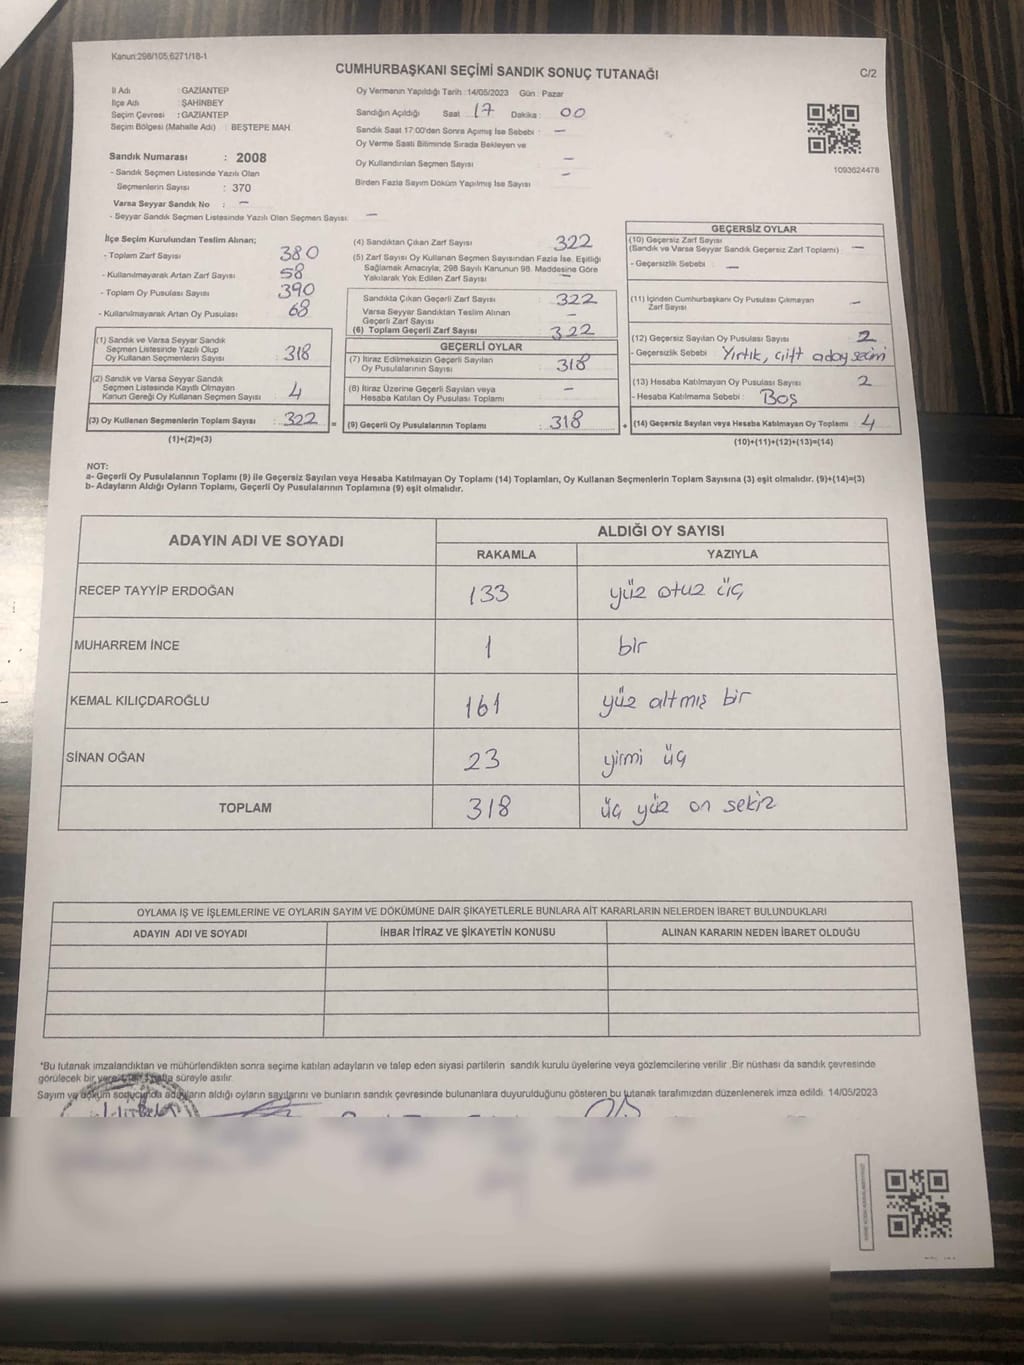 Kanun:298/105;6271/18-1
CUMHURBAŞKANI SEÇİMİ SANDIK SONUÇ TUTANAĞI
C/2
İl Adı : GAZİANTEP
İlçe Adı : ŞAHİNBEY
Seçim Çevresi : GAZİANTEP
Seçim Bölgesi (Mahalle Adı) : BEŞTEPE MAH.
Sandık Numarası : 2008
- Sandık Seçmen Listesinde Yazılı Olan
Seçmenlerin Sayısı : 370
Varsa Seyyar Sandık No : –
- Seyyar Sandık Seçmen Listesinde Yazılı Olan Seçmen Sayısı: –
Oy Vermenin Yapıldığı Tarih : 14/05/2023 Gün : Pazar
Sandığın Açıldığı Saat : 17 Dakika : 00
Sandık Saat 17:00'den Sonra Açımış İse Sebebi : –
Oy Verme Saati Bitiminde Sırada Bekleyen ve
Oy Kullandırılan Seçmen Sayısı –
Birden Fazla Sayım Döküm Yapılmış İse Sayısı –
1093624478
İlçe Seçim Kurulundan Teslim Alınan;
- Toplam Zarf Sayısı : 380
- Kullanılmayarak Artan Zarf Sayısı : 58
- Toplam Oy Pusulası Sayısı : 390
- Kullanılmayarak Artan Oy Pusulası : 68
(1) Sandık ve Varsa Seyyar Sandık
Seçmen Listesinde Yazılı Olup
Oy Kullanan Seçmenlerin Sayısı : 318
(2) Sandık ve Varsa Seyyar Sandık
Seçmen Listesinde Kayıtlı Olmayan
Kanun Gereği Oy Kullanan Seçmen Sayısı : 4
(3) Oy Kullanan Seçmenlerin Toplam Sayısı : 322 =
(1)+(2)=(3)
(4) Sandıktan Çıkan Zarf Sayısı : 322
(5) Zarf Sayısı Oy Kullanan Seçmen Sayısından Fazla İse, Eşitliği
Sağlamak Amacıyla; 298 Sayılı Kanunun 98. Maddesine Göre
Yakılarak Yok Edilen Zarf Sayısı : –
Sandıkta Çıkan Geçerli Zarf Sayısı : 322
Varsa Seyyar Sandıktan Teslim Alınan
Geçerli Zarf Sayısı : –
(6) Toplam Geçerli Zarf Sayısı : 322
GEÇERLİ OYLAR
(7) İtiraz Edilmeksizin Geçerli Sayılan
Oy Pusulasının Sayısı : 318
(8) İtiraz Üzerine Geçerli Sayılan veya
Hesaba Katılan Oy Pusulası Toplamı : –
(9) Geçerli Oy Pusulalarının Toplamı : 318 +
GEÇERSİZ OYLAR
(10) Geçersiz Zarf Sayısı
(Sandık ve Varsa Seyyar Sandık Geçersiz Zarf Toplamı) : –
- Geçersizlik Sebebi : –
(11) İçinden Cumhurbaşkanı Oy Pusulası Çıkmayan
Zarf Sayısı : –
(12) Geçersiz Sayılan Oy Pusulası Sayısı : 2
- Geçersizlik Sebebi : Yırtık, çift aday seçimi
(13) Hesaba Katılmayan Oy Pusulası Sayısı : 2
- Hesaba Katılmama Sebebi : Boş
(14) Geçersiz Sayılan veya Hesaba Katılmayan Oy Toplamı : 4
(10)+(11)+(12)+(13)=(14)
NOT:
a- Geçerli Oy Pusulalarının Toplamı (9) ile Geçersiz Sayılan veya Hesaba Katılmayan Oy Toplamı (14) Toplamları, Oy Kullanan Seçmenlerin Toplam Sayısına (3) eşit olmalıdır. (9)+(14)=(3)
b- Adayların Aldığı Oyların Toplamı, Geçerli Oy Pusulalarının Toplamına (9) eşit olmalıdır.
ADAYIN ADI VE SOYADI ALDIĞI OY SAYISI
RAKAMLA YAZIYLA
RECEP TAYYİP ERDOĞAN 133 yüz otuz üç
MUHARREM İNCE 1 bir
KEMAL KILIÇDAROĞLU 161 yüz altmış bir
SİNAN OĞAN 23 yirmi üç
TOPLAM 318 üç yüz on sekiz
OYLAMA İŞ VE İŞLEMLERİNE VE OYLARIN SAYIM VE DÖKÜMÜNE DAİR ŞİKAYETLERLE BUNLARA AİT KARARLARIN NELERDEN İBARET BULUNDUKLARI
ADAYIN ADI VE SOYADI İHBAR İTİRAZ VE ŞİKAYETİN KONUSU ALINAN KARARIN NEDEN İBARET OLDUĞU
*Bu tutanak imzalandıktan ve mühürlendikten sonra seçime katılan adayların ve talep eden siyasi partilerin sandık kurulu üyelerine veya gözlemcilerine verilir .Bir nüshası da sandık çevresinde
görülecek bir yere süreyle asılır.
Sayım ve döküm sonucunda adayların aldığı oyların sayılarını ve bunların sandık çevresinde bulunanlara duyurulduğunu gösteren bu tutanak tarafımızdan düzenlenerek imza edildi. 14/05/2023